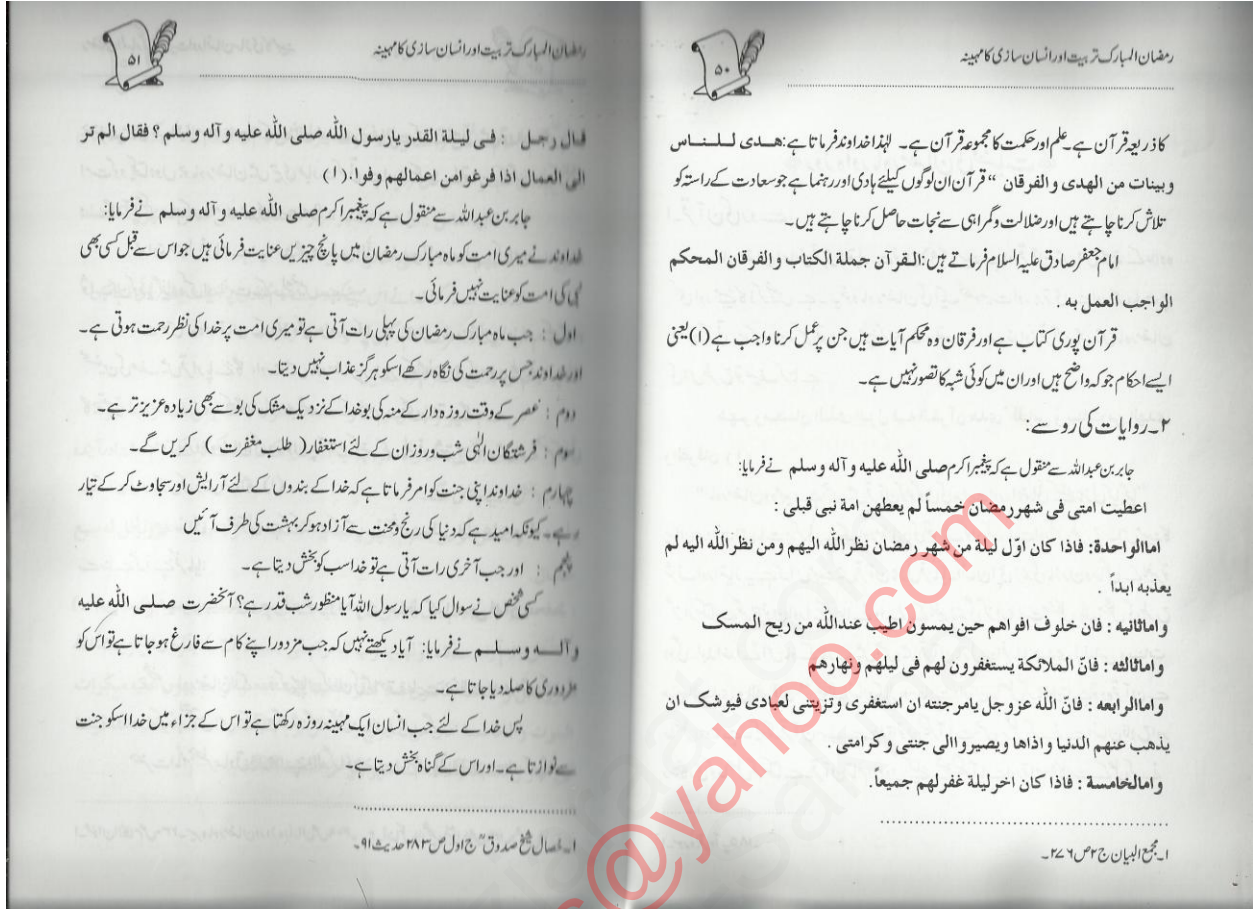 رمضان المبارک تربیت اور انسان سازی کا مہینہ
۵۰
کا ذریعہ قرآن ہے۔ علم اور حکمت کا مجموعہ قرآن ہے۔ لہٰذا خداوند فرماتا ہے: هدى للناس
وبینات من الهدی والفرقان “ قرآن ان لوگوں کیلئے ہادی اور رہنما ہے جو سعادت کے راستہ کو
تلاش کرنا چاہتے ہیں اور ضلالت و گمراہی سے نجات حاصل کرنا چاہتے ہیں۔
امام جعفر صادق علیہ السلام فرماتے ہیں: القرآن جملة الكتاب والفرقان المحكم
الواجب العمل به .
قرآن پوری کتاب ہے اور فرقان وہ محکم آیات ہیں جن پر عمل کرنا واجب ہے (۱) یعنی
ایسے احکام جو کہ واضح ہیں اور ان میں کوئی شبہ کا تصور نہیں ہے۔
۲۔ روایات کی رو سے:
جابر بن عبداللہ سے منقول ہے کہ پیغمبر اکرم صلی الله علیه و آله وسلم نے فرمایا:
اعطیت امتی فی شهر رمضان خمساً لم یعطهن امة نبی قبلی :
اما الواحدة: فاذا كان اوّل ليلة من شهر رمضان نظر الله اليهم ومن نظر الله اليه لم
يعذبه ابداً .
واماثانيه : فان خلوف افواهم حين يمسون اطيب عند الله من ريح المسک
واماثالثه : فانّ الملائكة يستغفرون لهم فى ليلهم ونهارهم
واما الرابعه : فانّ الله عزوجل يامر جنته ان استغفرى وتزيتنى لعبادى فيوشک ان
يذهب عنهم الدنيا واذاها ويصيروا الى جنتى وكرامتى .
واما الخامسة : فاذا كان اخر ليلة غفر لهم جميعاً.
۱۔ مجمع البیان ج ۲ ص ۲۷۶۔
رمضان المبارک تربیت اور انسان سازی کا مہینہ
۵۱
قال رجل : فى ليلة القدر يا رسول الله صلى الله عليه و آله وسلم ؟ فقال الم تر
الى العمال اذا فرغوا من اعمالهم وفوا. (۱)
جابر بن عبداللہ سے منقول ہے کہ پیغمبر اکرم صلی الله علیه و آله وسلم نے فرمایا:
خداوند نے میری امت کو ماہ مبارک رمضان میں پانچ چیزیں عنایت فرمائی ہیں جو اس سے قبل کسی بھی
نبی کی امت کو عنایت نہیں فرمائی۔
اول : جب ماہ مبارک رمضان کی پہلی رات آتی ہے تو میری امت پر خدا کی نظر رحمت ہوتی ہے۔
اور خداوند جس پر رحمت کی نگاہ رکھے اسکو ہرگز عذاب نہیں دیتا۔
دوم : عصر کے وقت روزہ دار کے منہ کی بو خدا کے نزدیک مشک کی بو سے بھی زیادہ عزیز تر ہے۔
سوم : فرشتگان الٰہی شب و روز ان کے لئے استغفار ( طلب مغفرت ) کریں گے۔
چہارم : خداوند اپنی جنت کو امر فرماتا ہے کہ خدا کے بندوں کے لئے آرایش اور سجاوٹ کر کے تیار
رہے۔ کیونکہ امید ہے کہ دنیا کی رنج و محنت سے آزاد ہو کر بہشت کی طرف آئیں
پنجم : اور جب آخری رات آتی ہے تو خدا سب کو بخش دیتا ہے۔
کسی شخص نے سوال کیا کہ یا رسول اللہ آیا منظور شب قدر ہے؟ آنحضرت صلی الله علیه
و آله وسلم نے فرمایا: آیا دیکھتے نہیں کہ جب مزدور اپنے کام سے فارغ ہو جاتا ہے تو اس کو
مزدوری کا صلہ دیا جاتا ہے۔
پس خدا کے لئے جب انسان ایک مہینہ روزہ رکھتا ہے تو اس کے جزاء میں خدا اسکو جنت
سے نوازتا ہے۔ اور اس کے گناہ بخش دیتا ہے۔
۱۔ خصال شیخ صدوقؒ ج اول ص ۲۸۳ حدیث ۹۱۔
s@yahoo.com